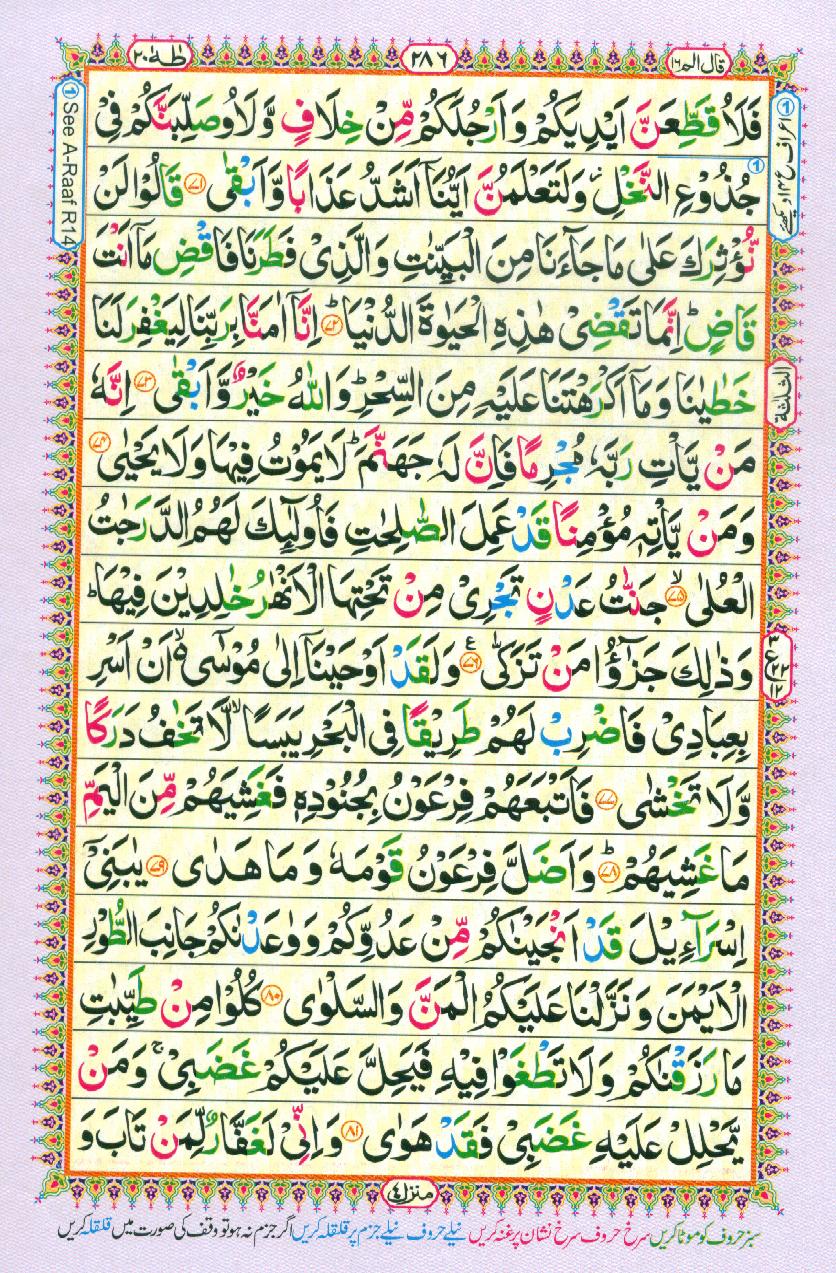 قال الم ١٦
٢٨٦
طٰهٰ ٢٠
1 See A-Raaf R14
فَلَاُقَطِّعَنَّ اَيْدِيَكُمْ وَاَرْجُلَكُمْ مِّنْ خِلَافٍ وَّلَاُوصَلِّبَنَّكُمْ فِىْ
جُذُوْعِ النَّخْلِ وَلَتَعْلَمُنَّ اَيُّنَاۤ اَشَدُّ عَذَابًا وَّاَبْقٰى ۝٧١ قَالُوْا لَنْ
نُّؤْثِرَكَ عَلٰى مَا جَآءَنَا مِنَ الْبَيِّنٰتِ وَالَّذِىْ فَطَرَنَا فَاقْضِ مَاۤ اَنْتَ
قَاضٍ ؕ اِنَّمَا تَقْضِىْ هٰذِهِ الْحَيٰوةَ الدُّنْيَا ؕ ۝٧٢ اِنَّاۤ اٰمَنَّا بِرَبِّنَا لِيَغْفِرَ لَنَا
خَطٰيٰنَا وَمَاۤ اَكْرَهْتَنَا عَلَيْهِ مِنَ السِّحْرِ ؕ وَاللّٰهُ خَيْرٌ وَّاَبْقٰى ۝٧٣ اِنَّهٗ
مَنْ يَّاْتِ رَبَّهٗ مُجْرِمًا فَاِنَّ لَهٗ جَهَنَّمَ ؕ لَا يَمُوْتُ فِيْهَا وَلَا يَحْيٰى ۝٧٤
وَمَنْ يَّاْتِهٖ مُؤْمِنًا قَدْ عَمِلَ الصّٰلِحٰتِ فَاُولٰٓئِكَ لَهُمُ الدَّرَجٰتُ
الْعُلٰى ۙ ۝٧٥ جَنّٰتُ عَدْنٍ تَجْرِىْ مِنْ تَحْتِهَا الْاَنْهٰرُ خٰلِدِيْنَ فِيْهَا ؕ
وَذٰلِكَ جَزٰٓؤُا مَنْ تَزَكّٰى ۝٧٦ ع وَلَقَدْ اَوْحَيْنَاۤ اِلٰى مُوْسٰٓى ۙ اَنْ اَسْرِ
بِعِبَادِىْ فَاضْرِبْ لَهُمْ طَرِيْقًا فِى الْبَحْرِ يَبَسًا ۙ لَّا تَخٰفُ دَرَكًا
وَّلَا تَخْشٰى ۝٧٧ فَاَتْبَعَهُمْ فِرْعَوْنُ بِجُنُوْدِهٖ فَغَشِيَهُمْ مِّنَ الْيَمِّ
مَا غَشِيَهُمْ ؕ ۝٧٨ وَاَضَلَّ فِرْعَوْنُ قَوْمَهٗ وَمَا هَدٰى ۝٧٩ يٰبَنِىْٓ
اِسْرَآءِيْلَ قَدْ اَنْجَيْنٰكُمْ مِّنْ عَدُوِّكُمْ وَوٰعَدْنٰكُمْ جَانِبَ الطُّوْرِ
الْاَيْمَنَ وَنَزَّلْنَا عَلَيْكُمُ الْمَنَّ وَالسَّلْوٰى ۝٨٠ كُلُوْا مِنْ طَيِّبٰتِ
مَا رَزَقْنٰكُمْ وَلَا تَطْغَوْا فِيْهِ فَيَحِلَّ عَلَيْكُمْ غَضَبِىْ ۚ وَمَنْ
يَّحْلِلْ عَلَيْهِ غَضَبِىْ فَقَدْ هَوٰى ۝٨١ وَاِنِّىْ لَغَفَّارٌ لِّمَنْ تَابَ وَ
الثلثة
منزل ٤
سبز حروف کو موٹا کریں سرخ حروف سرخ نشان پر غنہ کریں نیلے حروف نیلے جزم پر قلقلہ کریں اگر جزم نہ ہو تو وقف کی صورت میں قلقلہ کریں